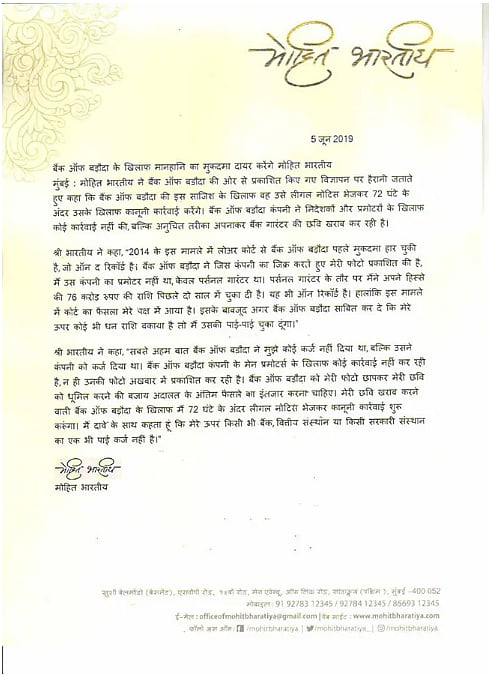 मोहित भारतीय
5 जून 2019
बैंक ऑफ बड़ौदा के खिलाफ मानहानि का मुकदमा दायर करेंगे मोहित भारतीय
मुंबई : मोहित भारतीय ने बैंक ऑफ बड़ौदा की ओर से प्रकाशित किए गए विज्ञापन पर हैरानी जताते
हुए कहा कि बैंक ऑफ बड़ौदा की इस साजिश के खिलाफ वह उसे लीगल नोटिस भेजकर 72 घंटे के
अंदर उसके खिलाफ कानूनी कार्रवाई करेंगे। बैंक ऑफ बड़ौदा कंपनी ने निदेशकों और प्रमोटरों के खिलाफ
कोई कार्रवाई नहीं की, बल्कि अनुचित तरीका अपनाकर बैंक गारंटर की छवि खराब कर रही है।
श्री भारतीय ने कहा, "2014 के इस मामले में लोअर कोर्ट से बैंक ऑफ बड़ौदा पहले मुकदमा हार चुकी
है, जो ऑन द रिकॉर्ड है। बैंक ऑफ बड़ौदा ने जिस कंपनी का जिक्र करते हुए मेरी फोटो प्रकाशित की है,
मैं उस कंपनी का प्रमोटर नहीं था, केवल पर्सनल गारंटर था। पर्सनल गारंटर के तौर पर मैंने अपने हिस्से
की 76 करोड़ रुपए की राशि पिछले दो साल में चुका दी है। यह भी ऑन रिकॉर्ड है। हालांकि इस मामले
में कोर्ट का फैसला मेरे पक्ष में आया है। इसके बावजूद अगर बैंक ऑफ बड़ौदा साबित कर दे कि मेरे
ऊपर कोई भी धन राशि बकाया है तो मैं उसकी पाई-पाई चुका दूंगा।"
श्री भारतीय ने कहा, "सबसे अहम बात बैंक ऑफ बड़ौदा ने मुझे कोई कर्ज नहीं दिया था, बल्कि उसने
कंपनी को कर्ज दिया था। बैंक ऑफ बड़ौदा कंपनी के मेन प्रमोटर्स के खिलाफ कोई कार्रवाई नहीं कर रही
है, न ही उनकी फोटो अखबार में प्रकाशित कर रही है। बैंक ऑफ बड़ौदा को मेरी फोटो छापकर मेरी छवि
को धूमिल करने की बजाय अदालत के अंतिम फैसले का इंतजार करना चाहिए। मेरी छवि खराब करने
वाली बैंक ऑफ बड़ौदा के खिलाफ मैं 72 घंटे के अंदर लीगल नोटिस भेजकर कानूनी कार्रवाई शुरू
करूंगा। मैं दावे के साथ कहता हूं कि मेरे ऊपर किसी भी बैंक, वित्तीय संस्थान या किसी सरकारी संस्थान
का एक भी पाई कर्ज नहीं है।"
मोहित भारतीय
मोहित भारतीय
खुशी बेलमोंडो (बेसमेंट), एसवीपी रोड, १८वी रोड, मेन एवेन्यू, ऑफ लिंक रोड, सांताक्रुज (पश्चिम ), मुंबई -400 052
मोबाइल: 91 92783 12345 / 92784 12345 / 86693 12345
ई-मेल : officeofmohitbharatiya@gmail.com | वेब साईट : www.mohitbharatiya.com
फॉलो अस ऑन: /mohitbharatiya | /mohitbharatiya_ | /mohitbharatiya.